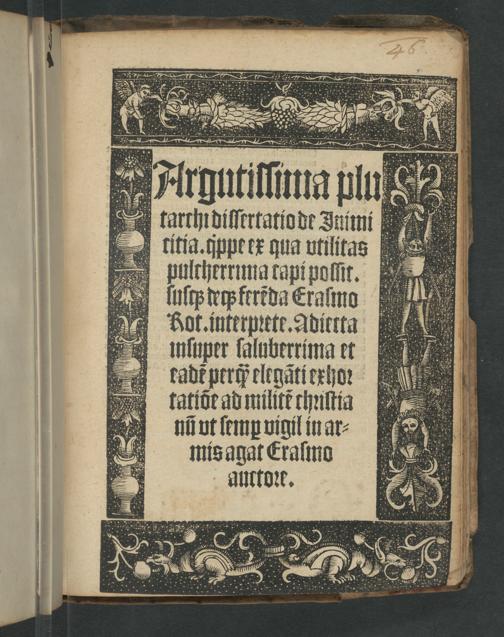 46.
Argutissima plu
tarchi dissertatio de Inimi
citia. q̃ppe ex qua vtilitas
pulcherrima capi possit.
susq̃ deq̃ ferẽda Erasmo
Rot. interprete. Adiecta
insuper saluberrima et
eadẽ perq̃ elegãti exhor
tatiõe ad militẽ christia
nũ vt semꝑ vigil in ar⸗
mis agat Erasmo
auctore.